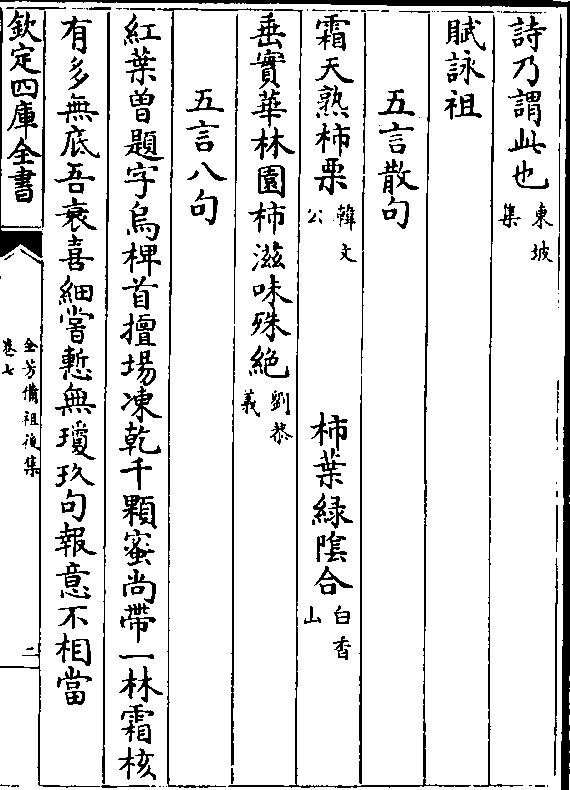 詩乃謂此也東坡集
賦詠祖
五言散句
霜天熟柿栗韓文公 柿葉綠隂合白香山
垂實華林園柿滋味殊絶劉恭義
五言八句
紅葉曽題字烏椑首擅場凍乾千顆蜜尚帶一林霜核
有多無底吾衰喜細嘗慙無瓊玖句報意不相當
欽定四庫全書
全芳備祖後集
卷七
二